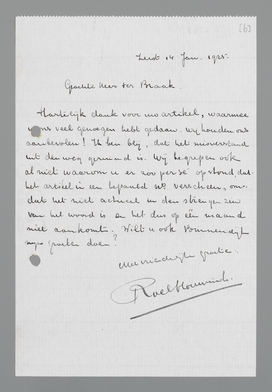 (6)
Zeist 14 Jan. 1925.
Geachte Heer ter Braak
Hartelijk dank voor uw artikel, waarmee
u ons veel genoegen hebt gedaan. Wij houden ons
aanbevolen! Ik ben blij, dat het misverstand
uit den weg geruimd is. Wij begrepen ook
al niet waarom u er zoo per sé op stond, dat
het artikel in een bepaald no. verscheen, om-
dat het niet actueel in den strengen zin
van het woord is en het dus op één maand
niet aankomt. Wilt u ook Binnendijk
mijn groeten doen?
Met vriendelijke groeten
Roel Houwink.